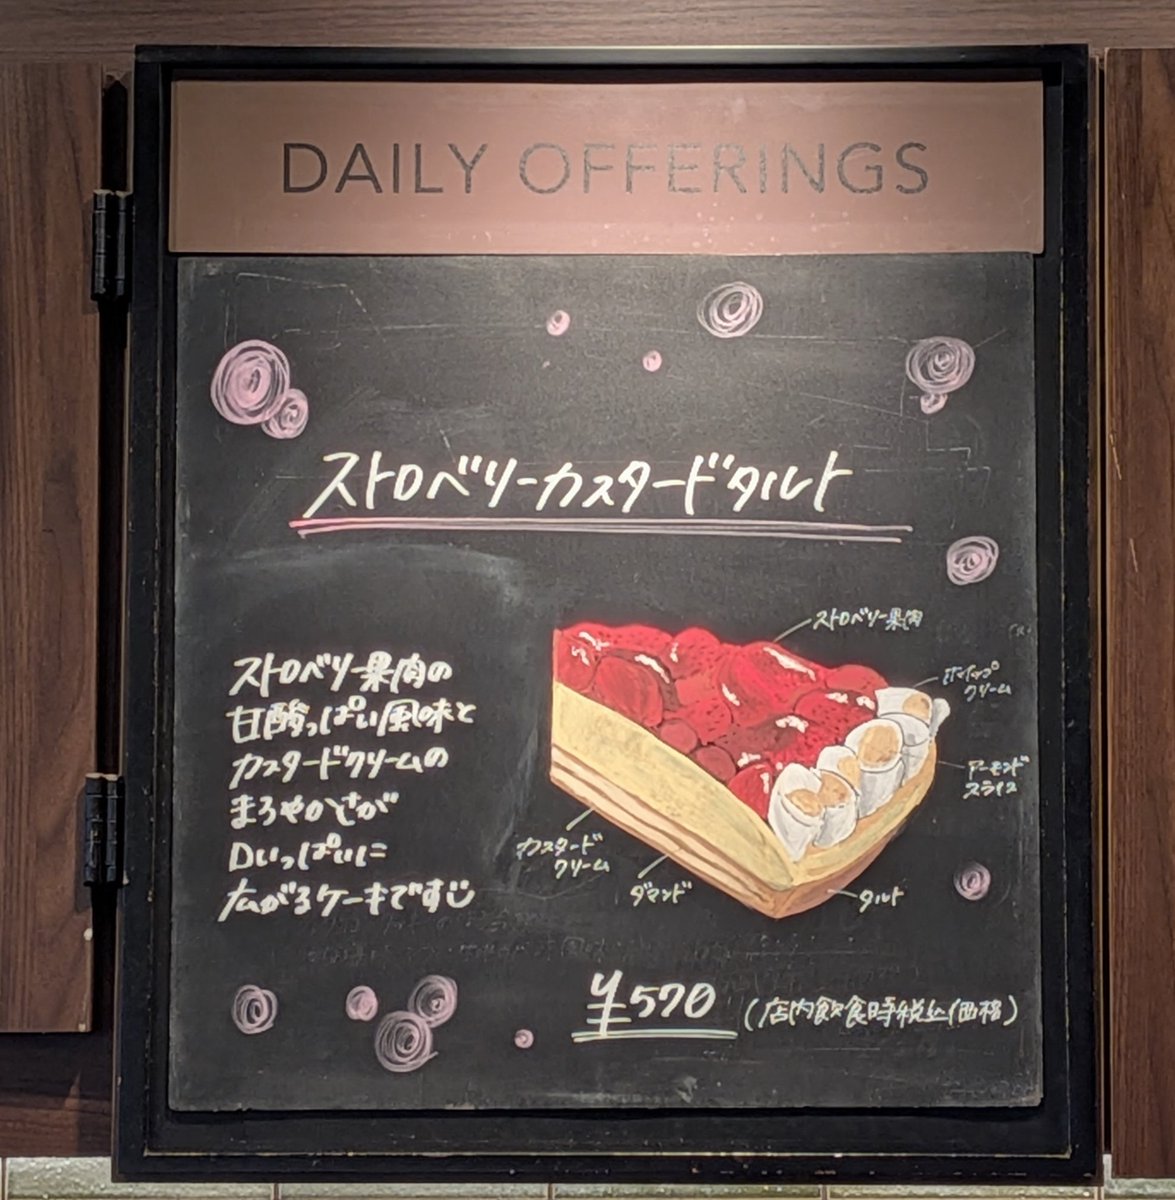 DAILY OFFERINGS
ストロベリーカスタードタルト
ストロベリー果肉の
甘酸っぱい風味と
カスタードクリームの
まろやかさが
口いっぱいに
広がるケーキです
ストロベリー果肉
ホイップ
クリーム
アーモンド
スライス
カスタード
クリーム
ダマンド
タルト
¥570 (店内飲食時税込価格)